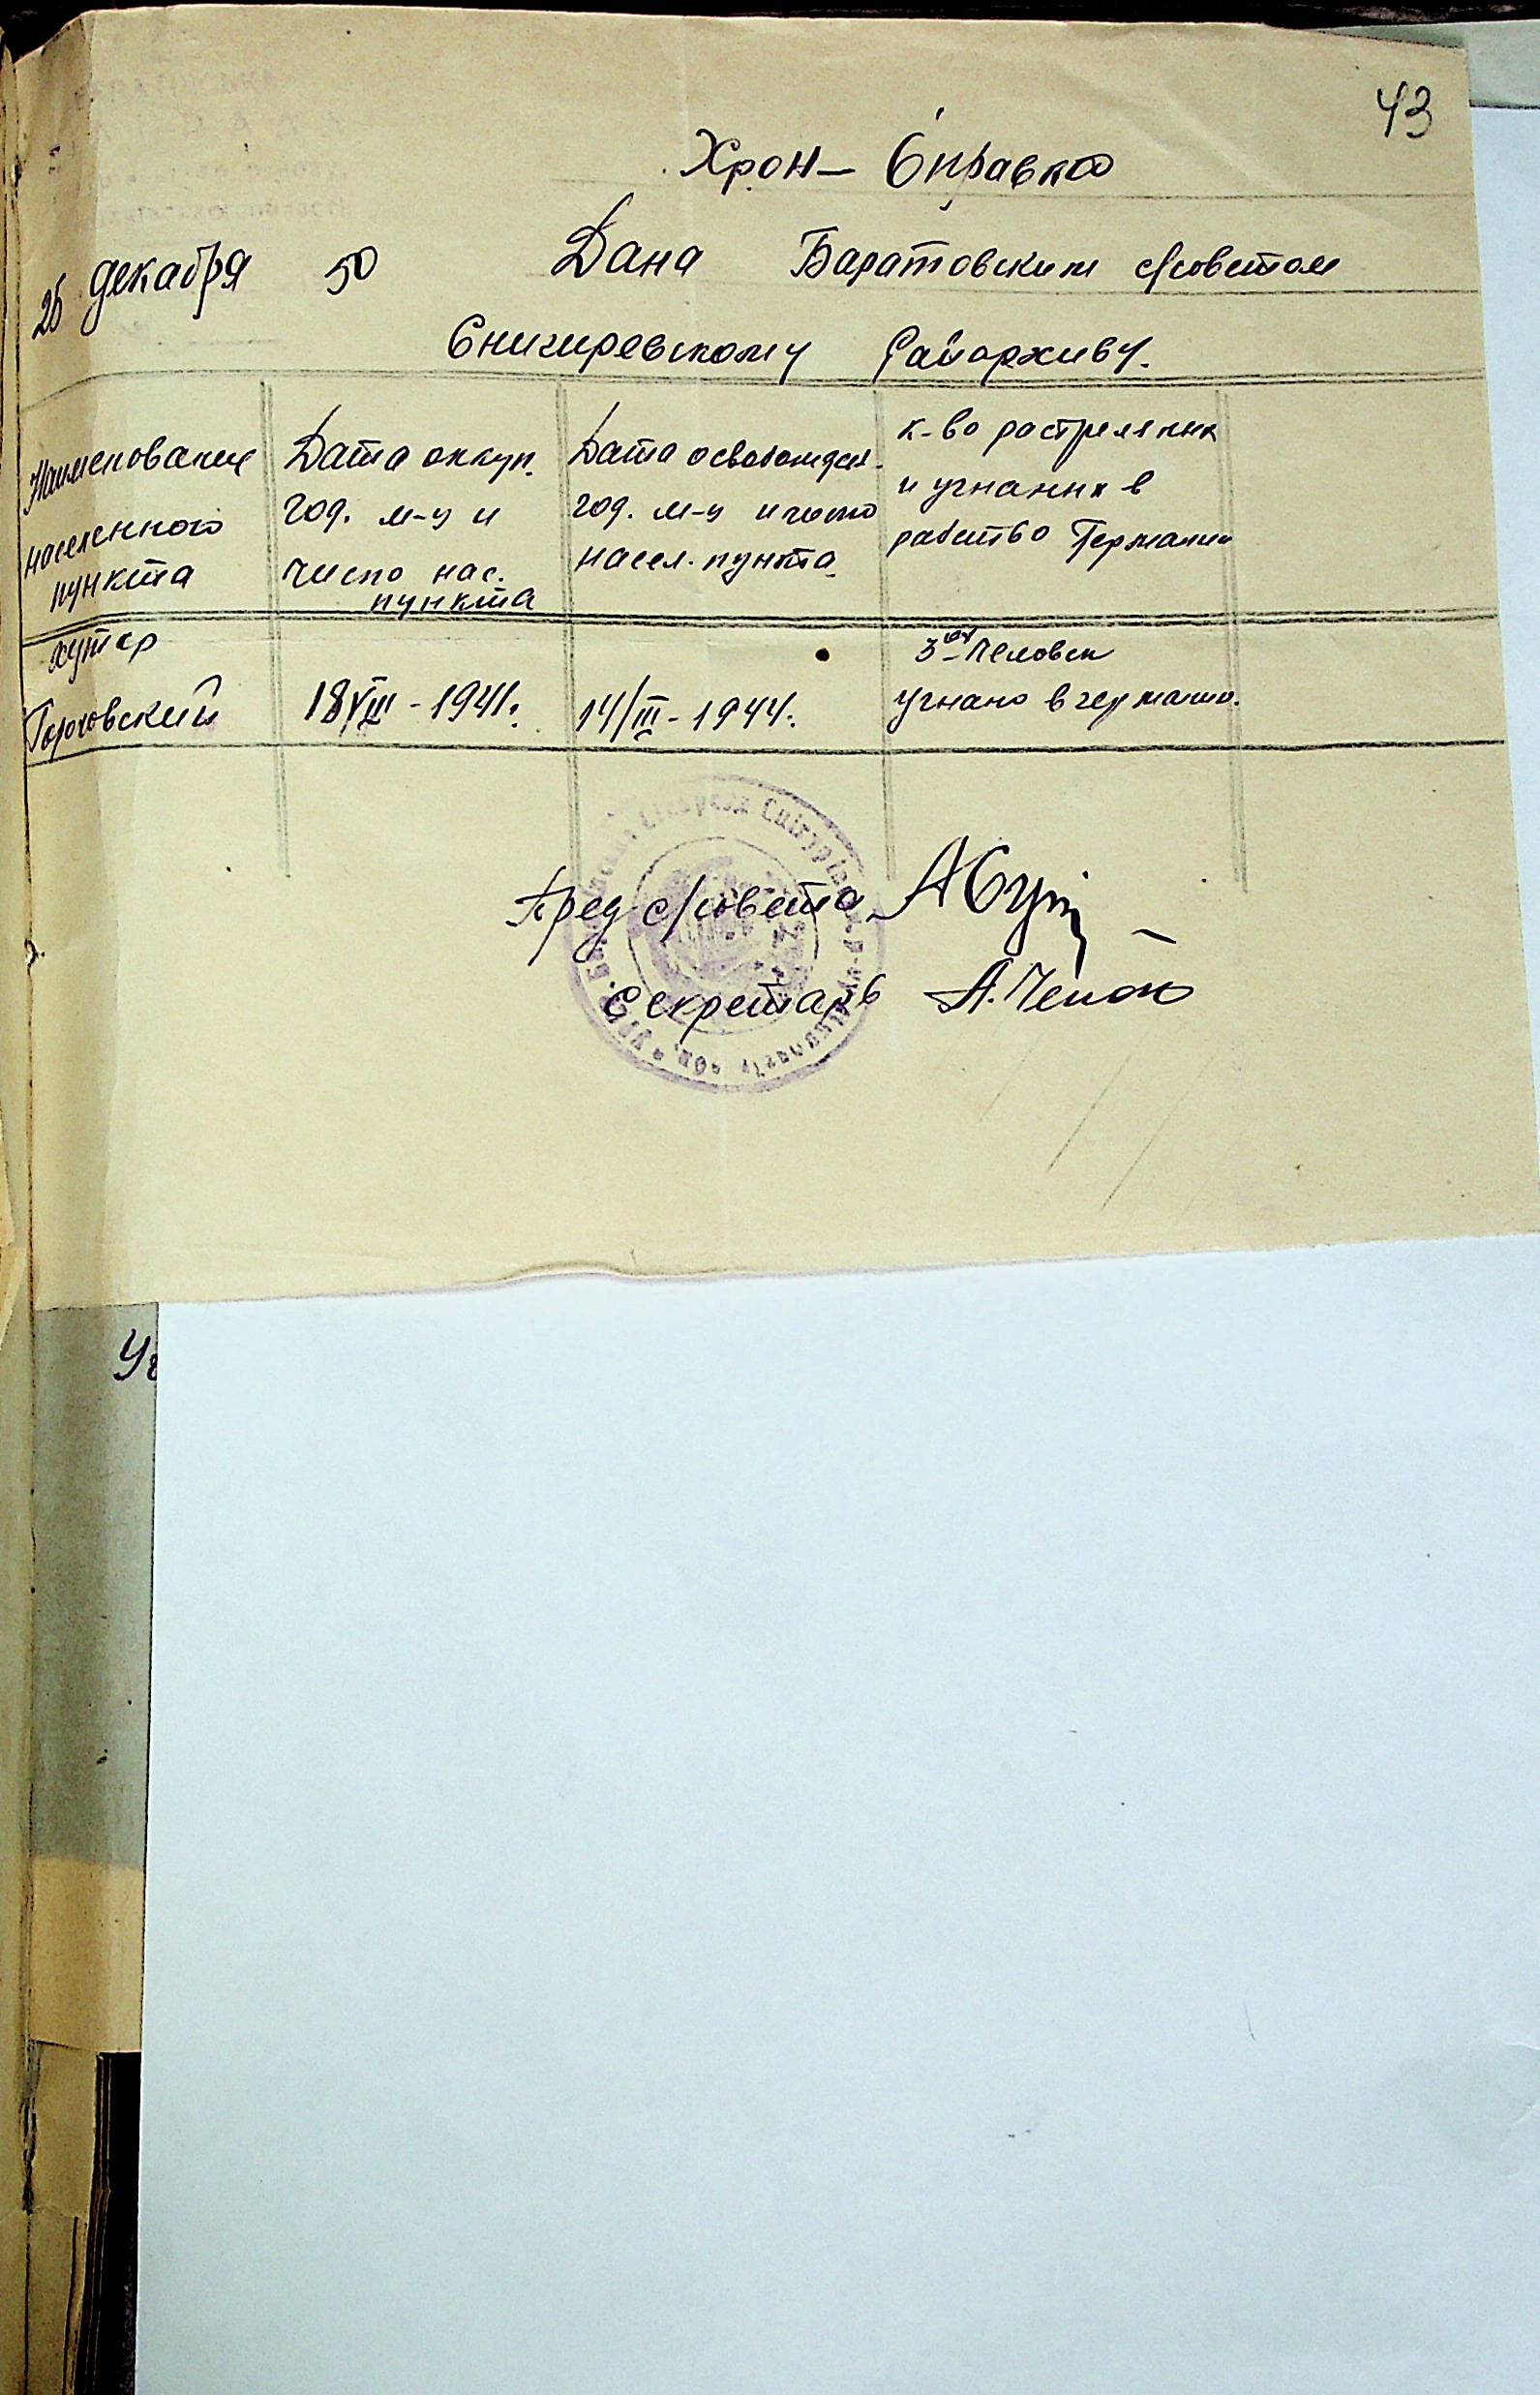 43
Хрон- Справка
26 декабря 50 Дана Баратовским с/советом
Снигиревскому Райархиву.
Наименование
населенного
пункта
Дата оккуп.
год. м-ц и
число нас.
пункта
Дата освобожден.
год. м-ц и число
насел. пункта
к-во растрелянных
и угнаных в
рабство Германии
хутор
Гороховский
18/VIII - 1941.
14/III - 1944.
3 человек
угнано в германию.
Пред. с/совета
Секретарь